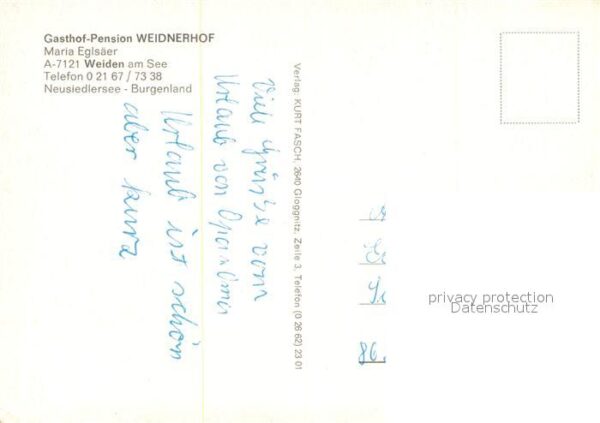 Gasthof-Pension WEIDNERHOF
Maria Eglsäer
A-7121 Weiden am See
Telefon 0 21 67 / 73 38
Neusiedlersee - Burgenland
Viele Grüße vom
Urlaub von Opa & Omi
Urlaub ist schön
aber kurz
Verlag: KURT FASCH, 2640 Gloggnitz, Zeile 3, Telefon (0 26 62) 23 01
86.
privacy protection
Datenschutz